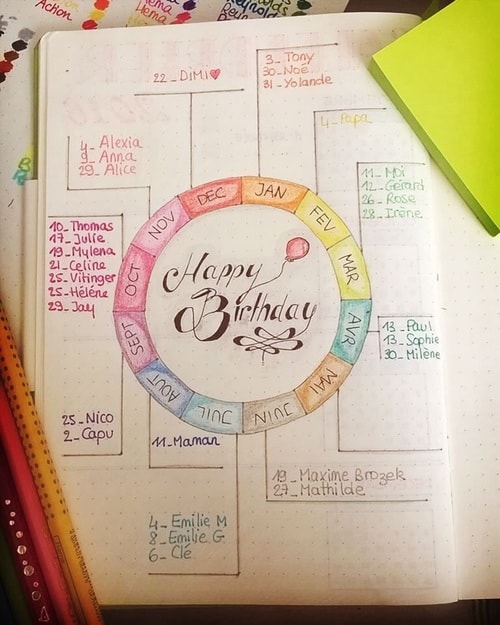 Action
Hema
Hema
Reynolds
22_DIMI
3_ Tony
30_Noé.
31_ Yolande
4_ Papa
4_ Alexia
9_ Anna
29_ Alice
11_ Moi
12_ Gérard
26_ Rose
28_ Irène
10_Thomas
17_Julie
19_Mylena
21_Celine
25_Vitinger
25_Hélène
29_Jay
DEC
JAN
FEV
MAR
AVR
MAI
JUIN
JUIL
AOUT
SEPT
OCT
NOV
Happy
Birthday
13_Paul
13_Sophie
30_Milène
25_Nico
2_Capu
11_Maman
19_Maxime Brozek
27_Mathilde
4_ Emilie M
8_Emilie G
6_ Clé